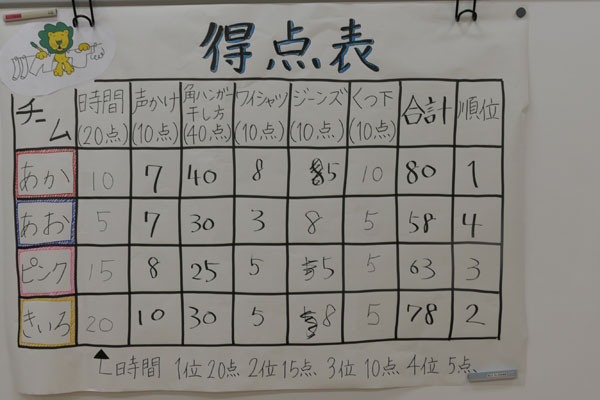 得点表
チーム 時間(20点) 声かけ(10点) 角ハンガー干し方(40点) ワイシャツ(10点) ジーンズ(10点) くつ下(10点) 合計 順位
あか 10 7 40 8 5 10 80 1
あお 5 7 30 3 8 5 58 4
ピンク 15 8 25 5 5 5 63 3
きいろ 20 10 30 5 8 5 78 2
時間 1位20点 2位15点 3位10点 4位5点